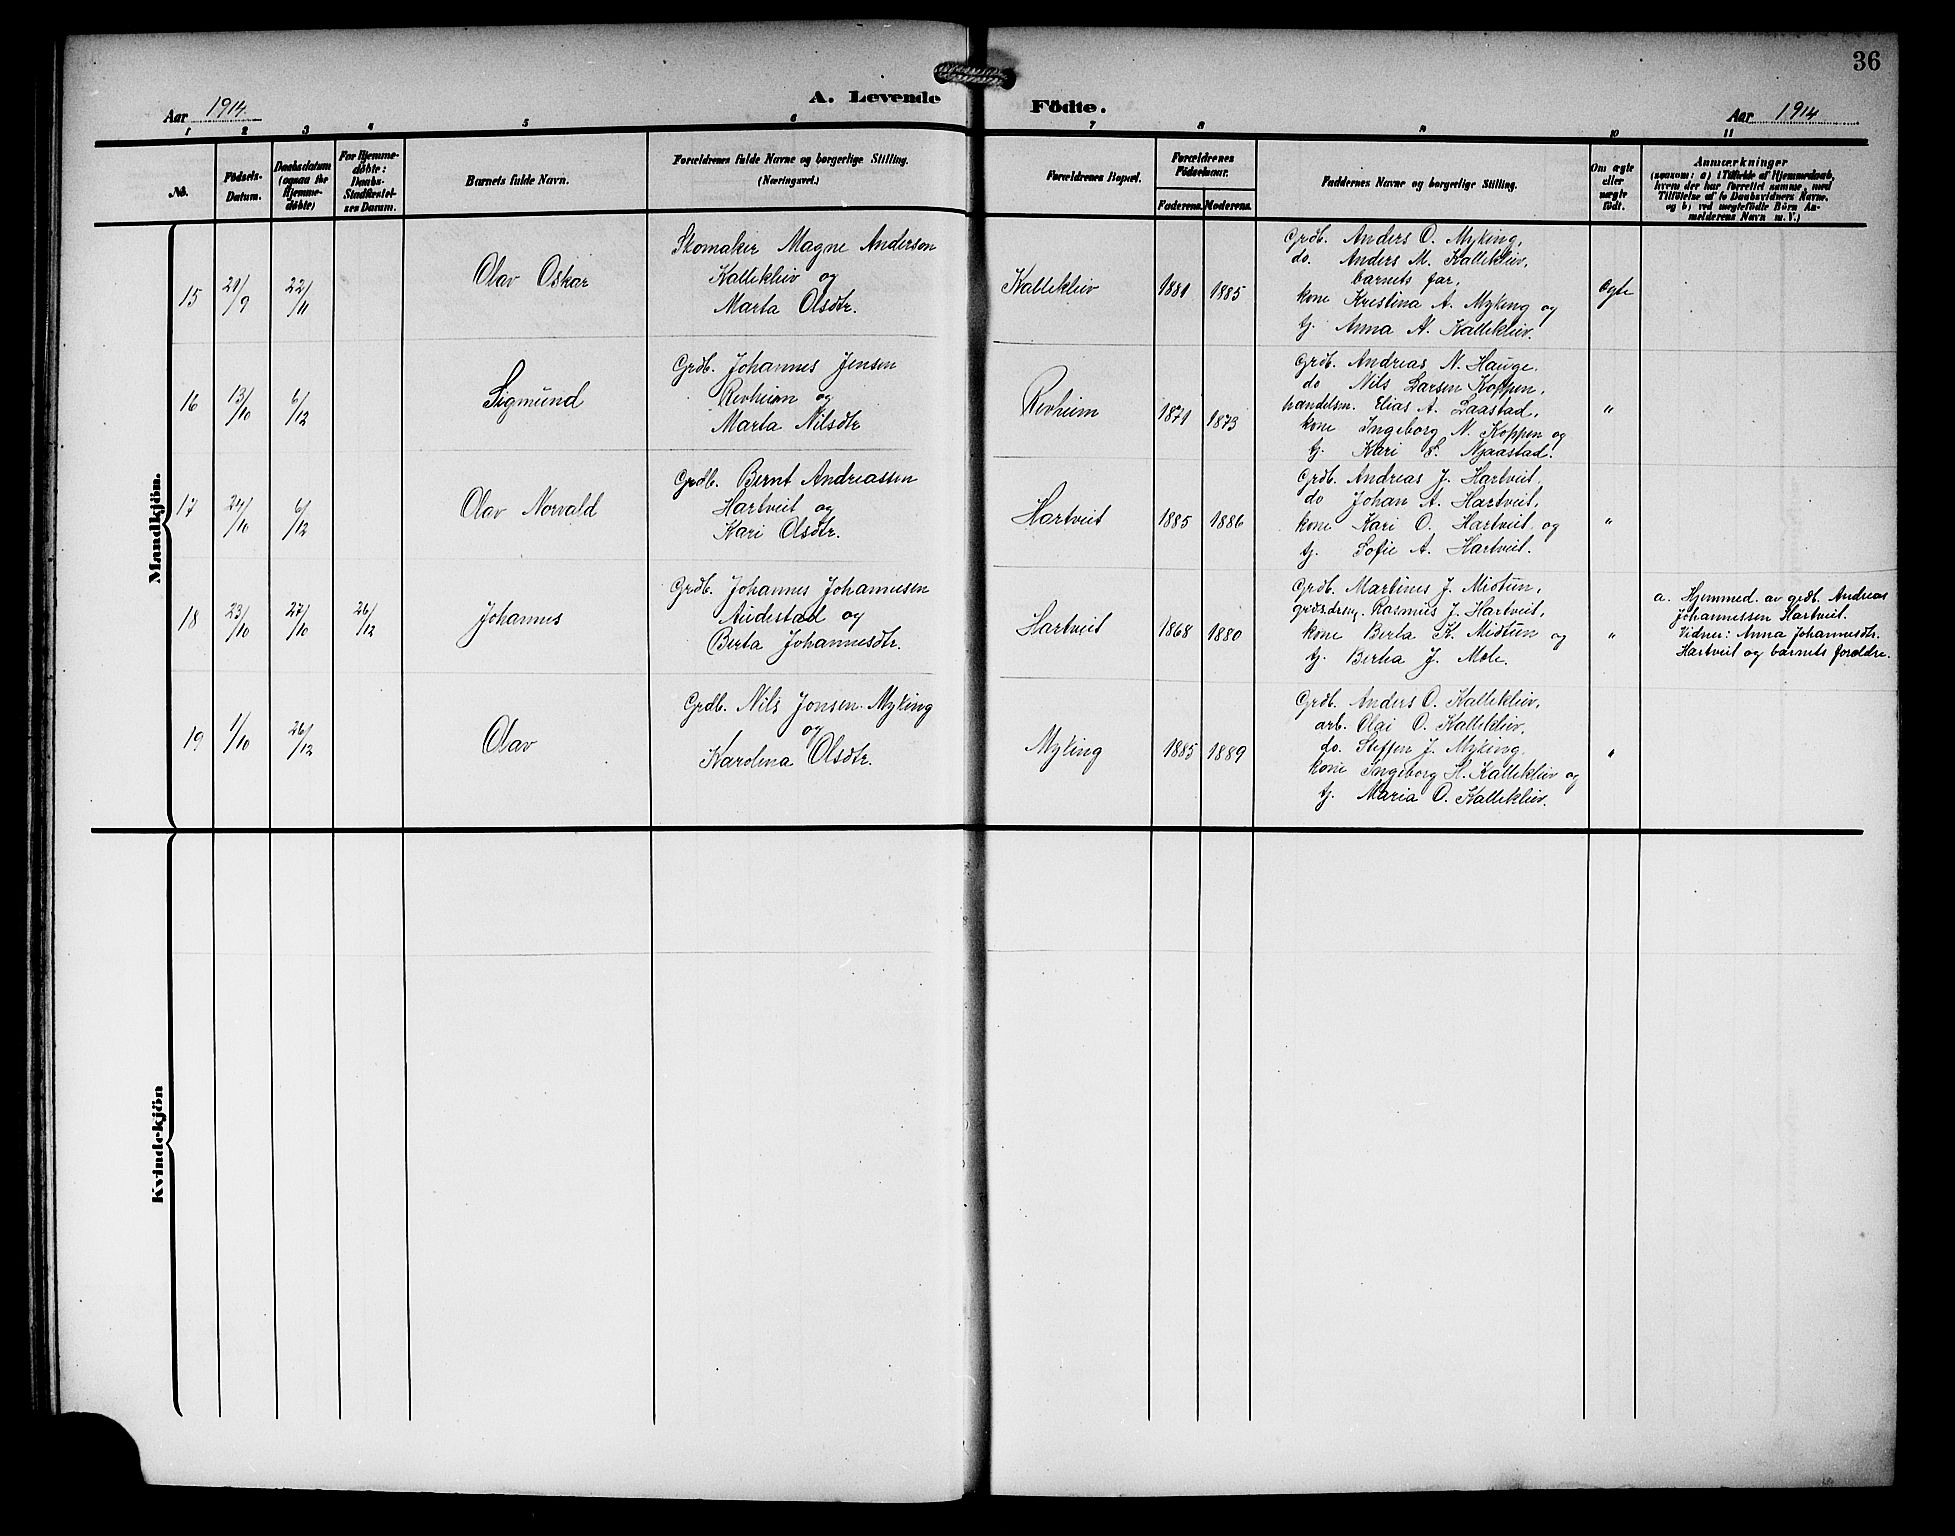 36
A. Levende Födte.
Aar 1914.
Aar 1914
1 2 3 4 5 6 7 8 9 10 11
No.
Födsels-
Datum.
Daabsdatum
(ogsaa for
Hjemme-
döbte)
For Hjemme-
döbte:
Daabs-
Stadfæstel-
ses Datum.
Barnets fulde Navn.
Forældrenes fulde Navne og borgerlige Stilling.
(Næringsvei.)
Forældrenes Bopæl.
Forældrenes
Födselsaar.
Faderens. Moderens.
Faddernes Navne og borgerlige Stilling.
Om ægte
eller
uægte
födt.
Anmærkninger
(saasom: a) i Tilfælde af Hjemmedaab,
hvem der har forrettet samme, med
Tilföielse af to Daabsvidners Navne.
og b) ved uægtefödte Börn An-
melderens Navn m. V.)
Mandkjön.
15
21/9
22/11
Olav Oskar
Skomaker Magne Anderson
Kallekleiv og
Marta Olsdtr.
Kallekleiv
1881
1885
Grdb. Anders O. Myking,
do. Anders M. Kallekleiv,
barnets far,
kone Kristina A. Myking og
tj. Anna A. Kallekleiv.
Ægte
16
13/10
6/12
Sigmund
Grdb. Johannes Jensen
Revheim og
Marta Nilsdtr
Revheim
1871
1873
Grdb. Andreas N. Hauge.
do Nils Larsen Koppen,
handelsm. Elias A. Laastad,
kone Ingeborg N. Koppen og
tj. Kari L. Njaastad.
"
17
24/10
6/12
Olav Norvald
Grdb. Bernt Andreassen
Hartveit og
Kari Olsdtr.
Hartveit
1885
1886
Grdb. Andreas J. Hartveit,
do Johan A. Hartveit,
kone Kari O. Hartveit og
tj. Sofie A. Hartveit.
"
18
23/10
27/10
26/12
Johannes
Grdb. Johannes Johannesen
Audestad og
Berta Johannesdtr.
Hartveit
1868
1880
Grdb. Martines J. Midtun,
grdsdreng. Rasmus J. Hartveit,
kone Berta K. Midtun og
tj. Berta J. Mole.
"
a. Hjemmed. av grdb. Andreas
Johannessen Hartveit.
Vidner: Anna Johannesdtr.
Hartveit og barnets foreldre.
19
1/10
26/12
Olav
Grdb. Nils Jonsen Myking
og
Karolina Olsdtr.
Myking
1885
1889
Grdb. Anders O. Kallekleiv,
arb. Olai O. Kallekleiv,
do. Steffen J. Myking,
kone Ingeborg H. Kallekleiv og
tj. Maria O. Kallekleiv.
"
Kvindekjön